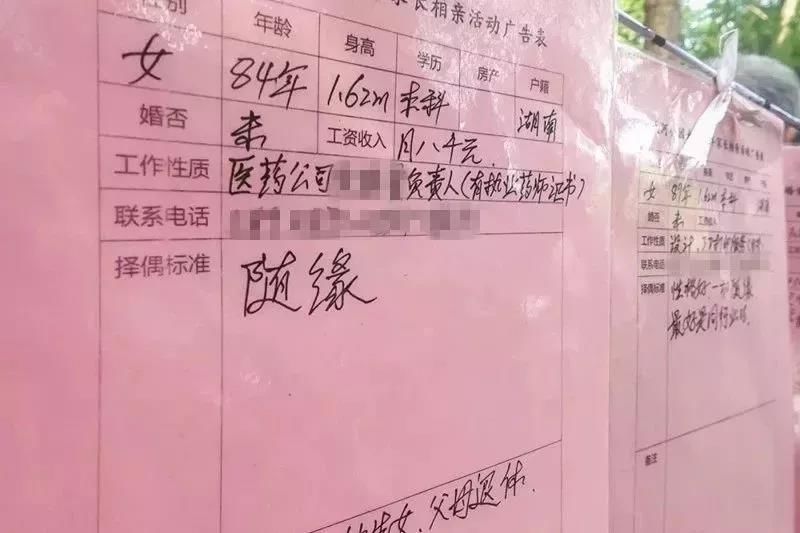 家长相亲活动广告表
性别 年龄 身高 学历 房产 户籍
女 84年 1.62m 本科 湖南
婚否 未 工资收入 月八千元
工作性质 医药公司 负责人(有执业药师证书)
联系电话
择偶标准 随缘
父母退休.
家长相亲活动广告表
女 89年 1.62m 本科 湖南
婚否 未 工资收入
工作性质 设计
联系电话
择偶标准 性格好一切随缘
最好是同行业
备注